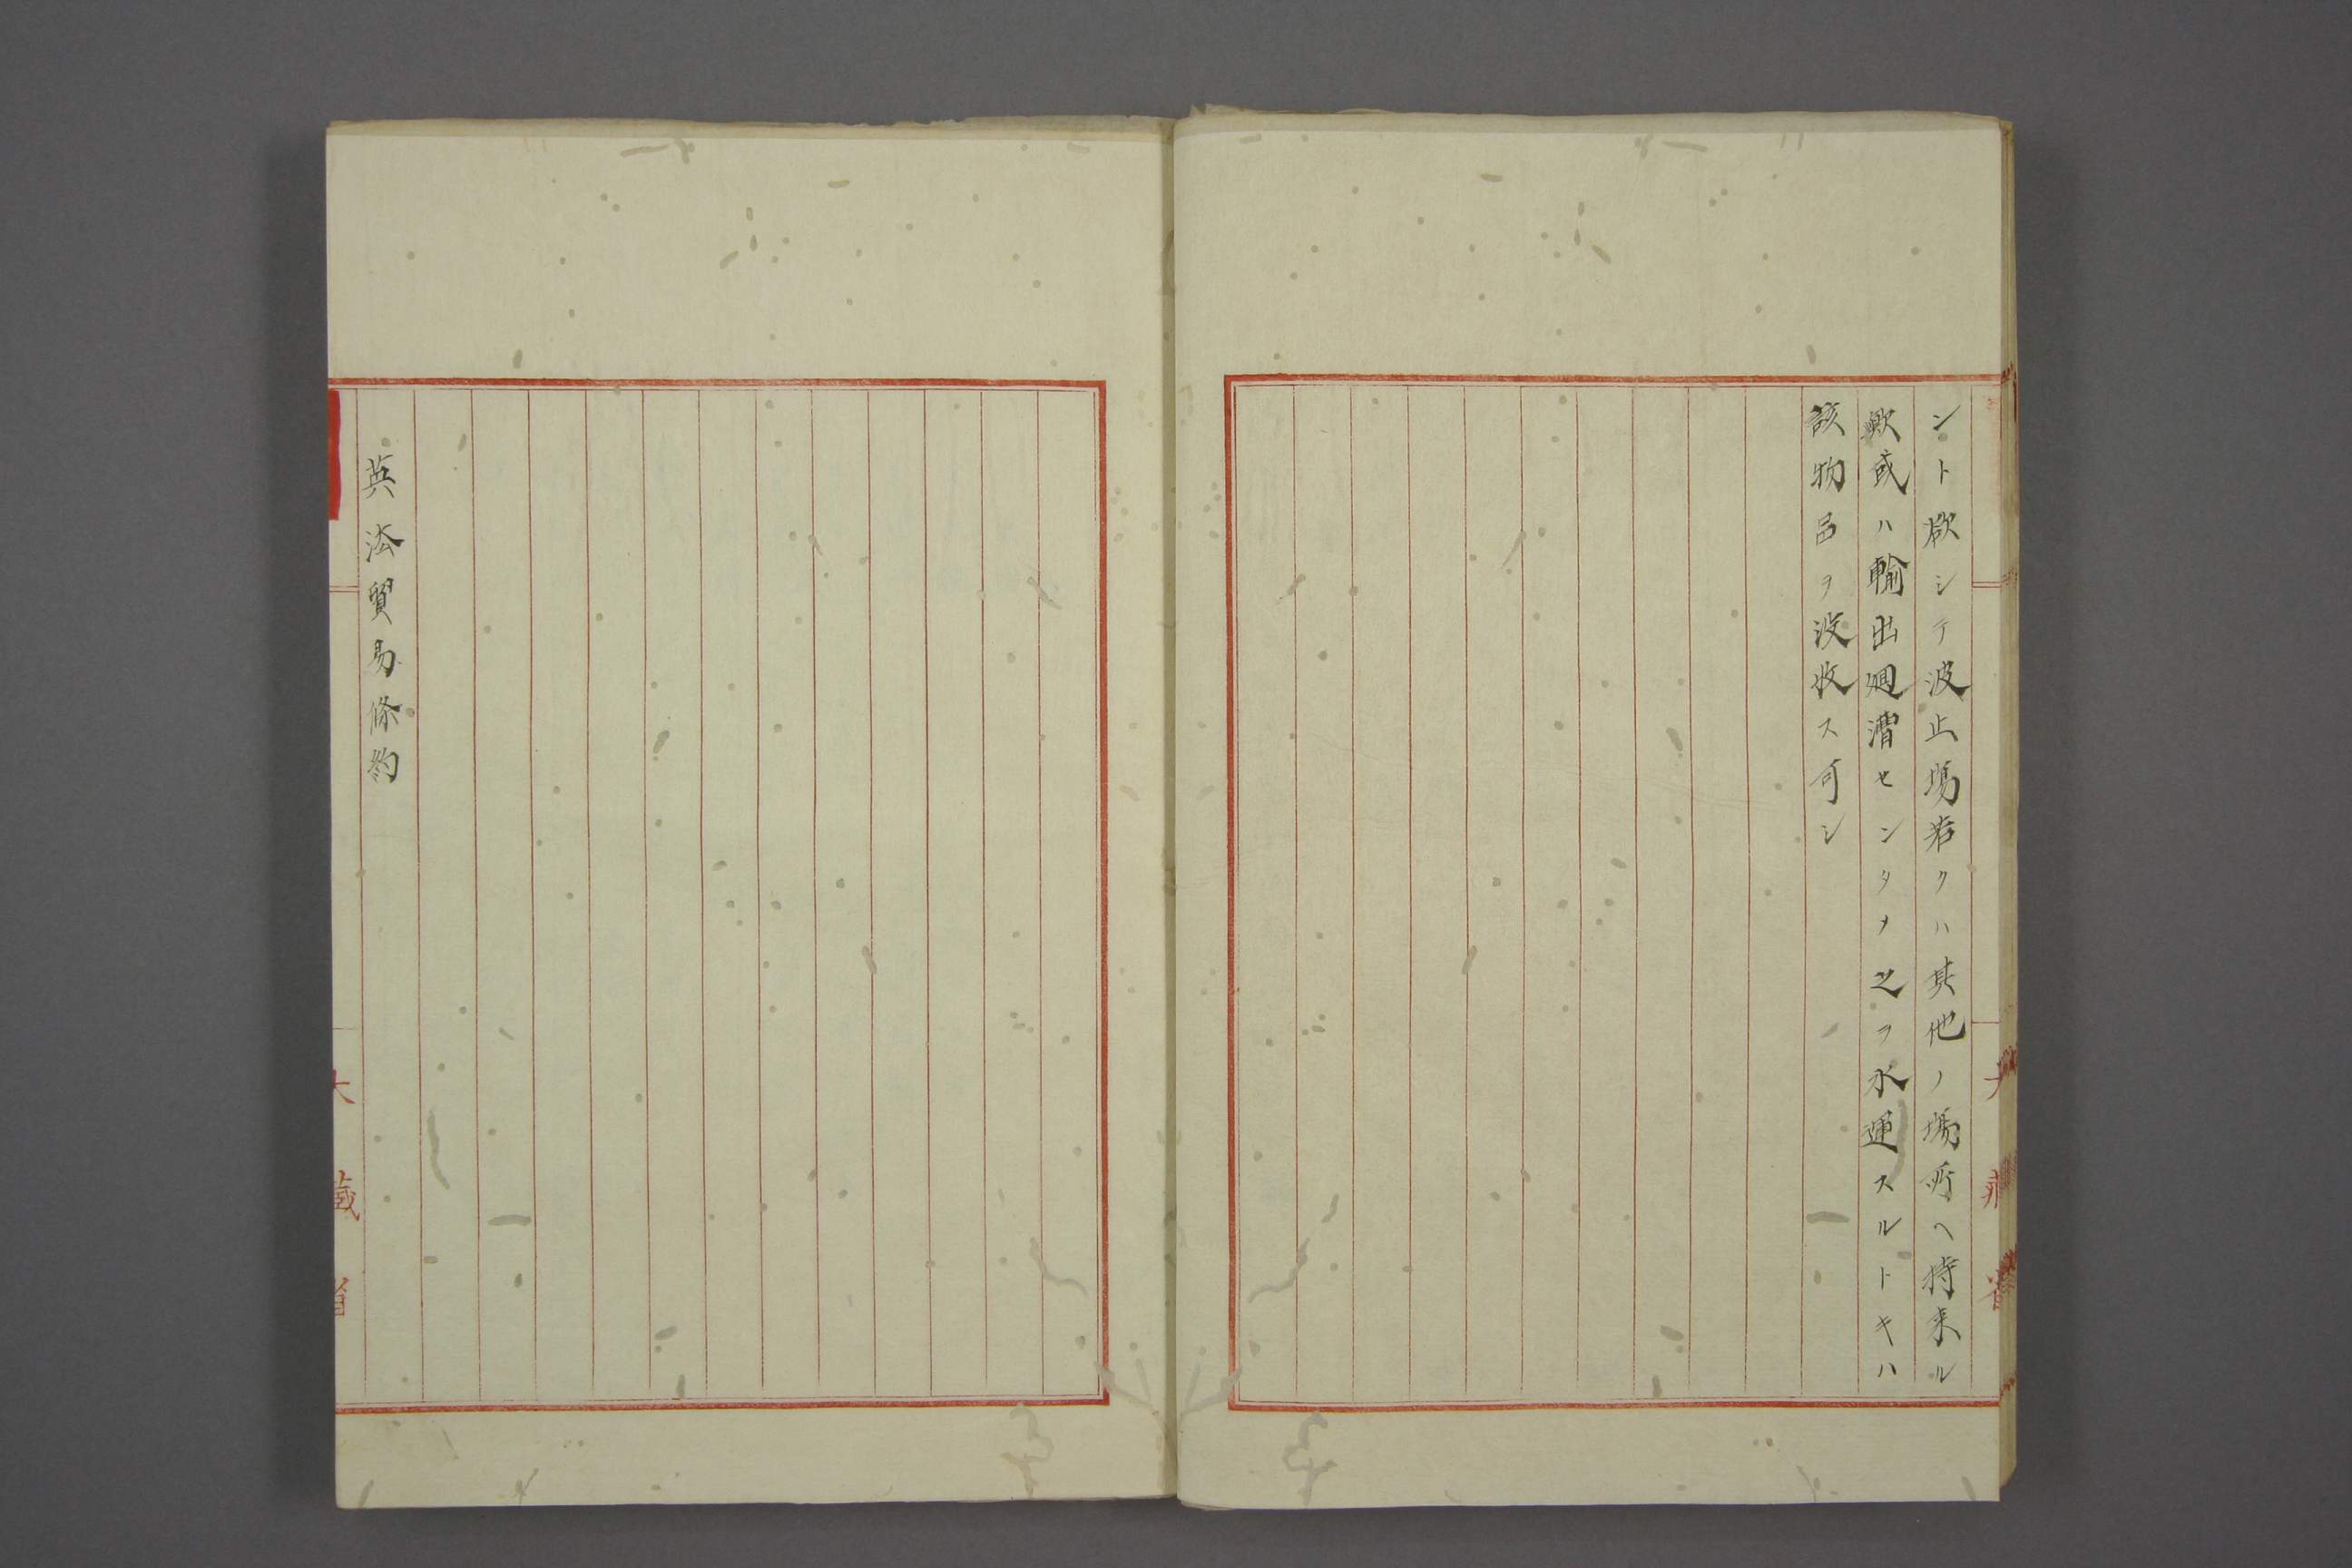 ント欲シテ波止場若クハ其他ノ場所ヘ持来ル
歟或ハ輸出廻漕センタメ之ヲ水運スルトキハ
該物品ヲ没收ス可シ
大藏省
英法貿易條約
大藏省